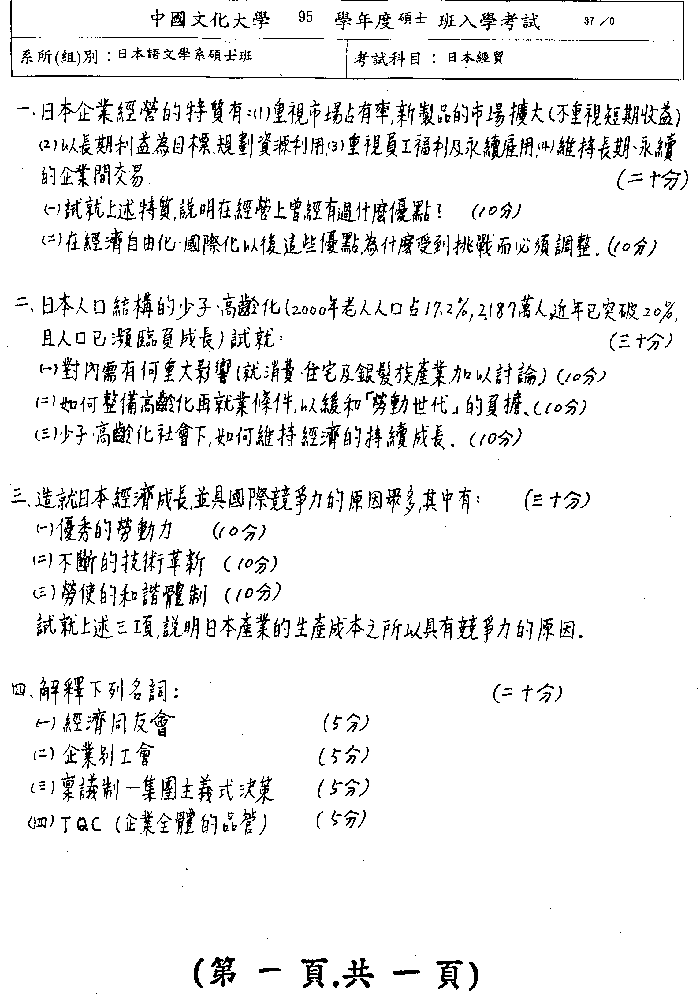 中國文化大學 95 學年度碩士 班入學考試 37/0
系所(組)別：日本語文學系碩士班 考試科目：日本經貿
一、日本企業經營的特質有：(1)重視市場占有率,新製品的市場擴大(不重視短期收益)
(2)以長期利益為目標,規劃資源利用,(3)重視員工福利及永續雇用,(4)維持長期、永續
的企業間交易. (二十分)
㈠試就上述特質,說明在經營上曾經有過什麼優點? (10分)
㈡在經濟自由化、國際化以後,這些優點,為什麼受到挑戰而必須調整. (10分)
二、日本人口結構的少子、高齡化(2000年老人人口占17.2%, 2,187萬人,近年已突破20%,
且人口已瀕臨負成長)試就： (三十分)
㈠對內需有何重大影響(就消費、住宅及銀髮族產業加以討論) (10分)
㈡如何整備高齡化再就業條件,以緩和「勞動世代」的負擔. (10分)
㈢少子、高齡化社會下,如何維持經濟的持續成長. (10分)
三、造就日本經濟成長,並具國際競爭力的原因眾多,其中有： (三十分)
㈠優秀的勞動力 (10分)
㈡不斷的技術革新 (10分)
㈢勞使的和諧體制 (10分)
試就上述三項,說明日本產業的生產成本之所以具有競爭力的原因.
四、解釋下列名詞： (二十分)
㈠經濟同友會 (5分)
㈡企業別工會 (5分)
㈢稟議制－集團主義式決策 (5分)
㈣TQC (企業全體的品管) (5分)
(第 一 頁.共 一 頁)